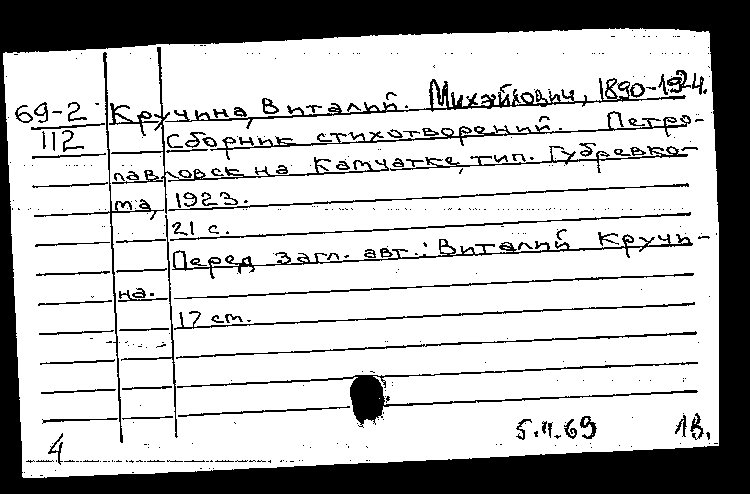 69-2 Кручина, Виталий. Михайлович, 1890-1924.
112 Сборник стихотворений. Петро-
павловск на Камчатке, тип. Губревко-
ма, 1923.
21 с.
Перед загл. авт.: Виталий Кручи-
на.
17 ст.
4 5.II.69 1В.